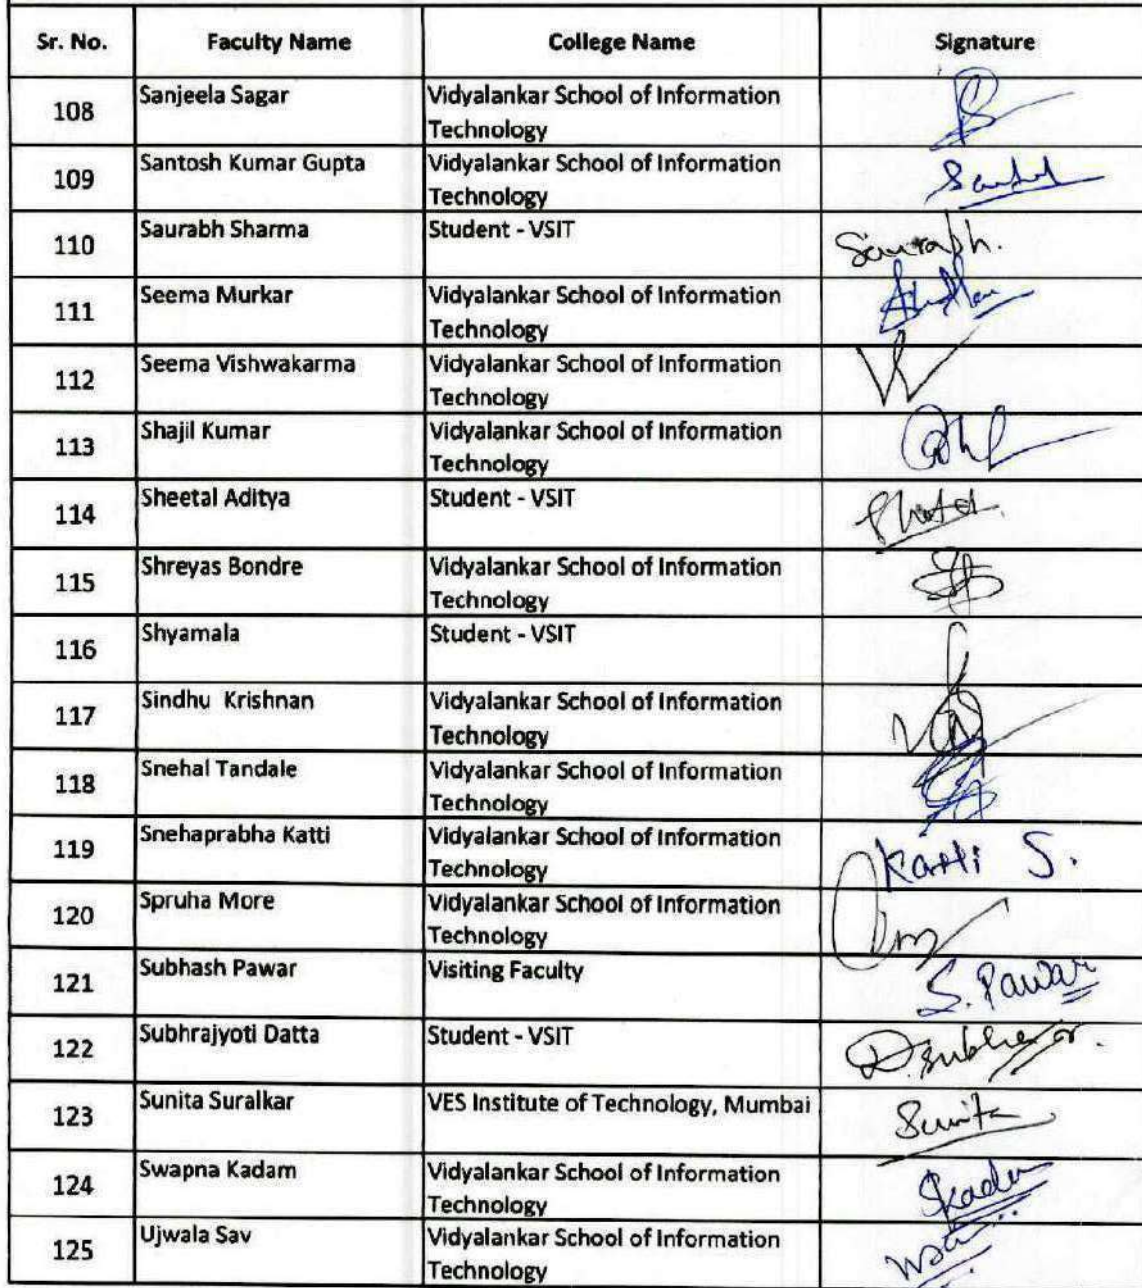 Sr. No. Faculty Name College Name Signature
108 Sanjeela Sagar Vidyalankar School of Information
Technology
109 Santosh Kumar Gupta Vidyalankar School of Information
Technology
110 Saurabh Sharma Student - VSIT Saurabh.
111 Seema Murkar Vidyalankar School of Information
Technology
112 Seema Vishwakarma Vidyalankar School of Information
Technology
113 Shajil Kumar Vidyalankar School of Information
Technology
114 Sheetal Aditya Student - VSIT
115 Shreyas Bondre Vidyalankar School of Information
Technology
116 Shyamala Student - VSIT
117 Sindhu Krishnan Vidyalankar School of Information
Technology
118 Snehal Tandale Vidyalankar School of Information
Technology
119 Snehaprabha Katti Vidyalankar School of Information
Technology Katti S.
120 Spruha More Vidyalankar School of Information
Technology
121 Subhash Pawar Visiting Faculty S. Pawar
122 Subhrajyoti Datta Student - VSIT
123 Sunita Suralkar VES Institute of Technology, Mumbai Sunita
124 Swapna Kadam Vidyalankar School of Information
Technology
125 Ujwala Sav Vidyalankar School of Information
Technology